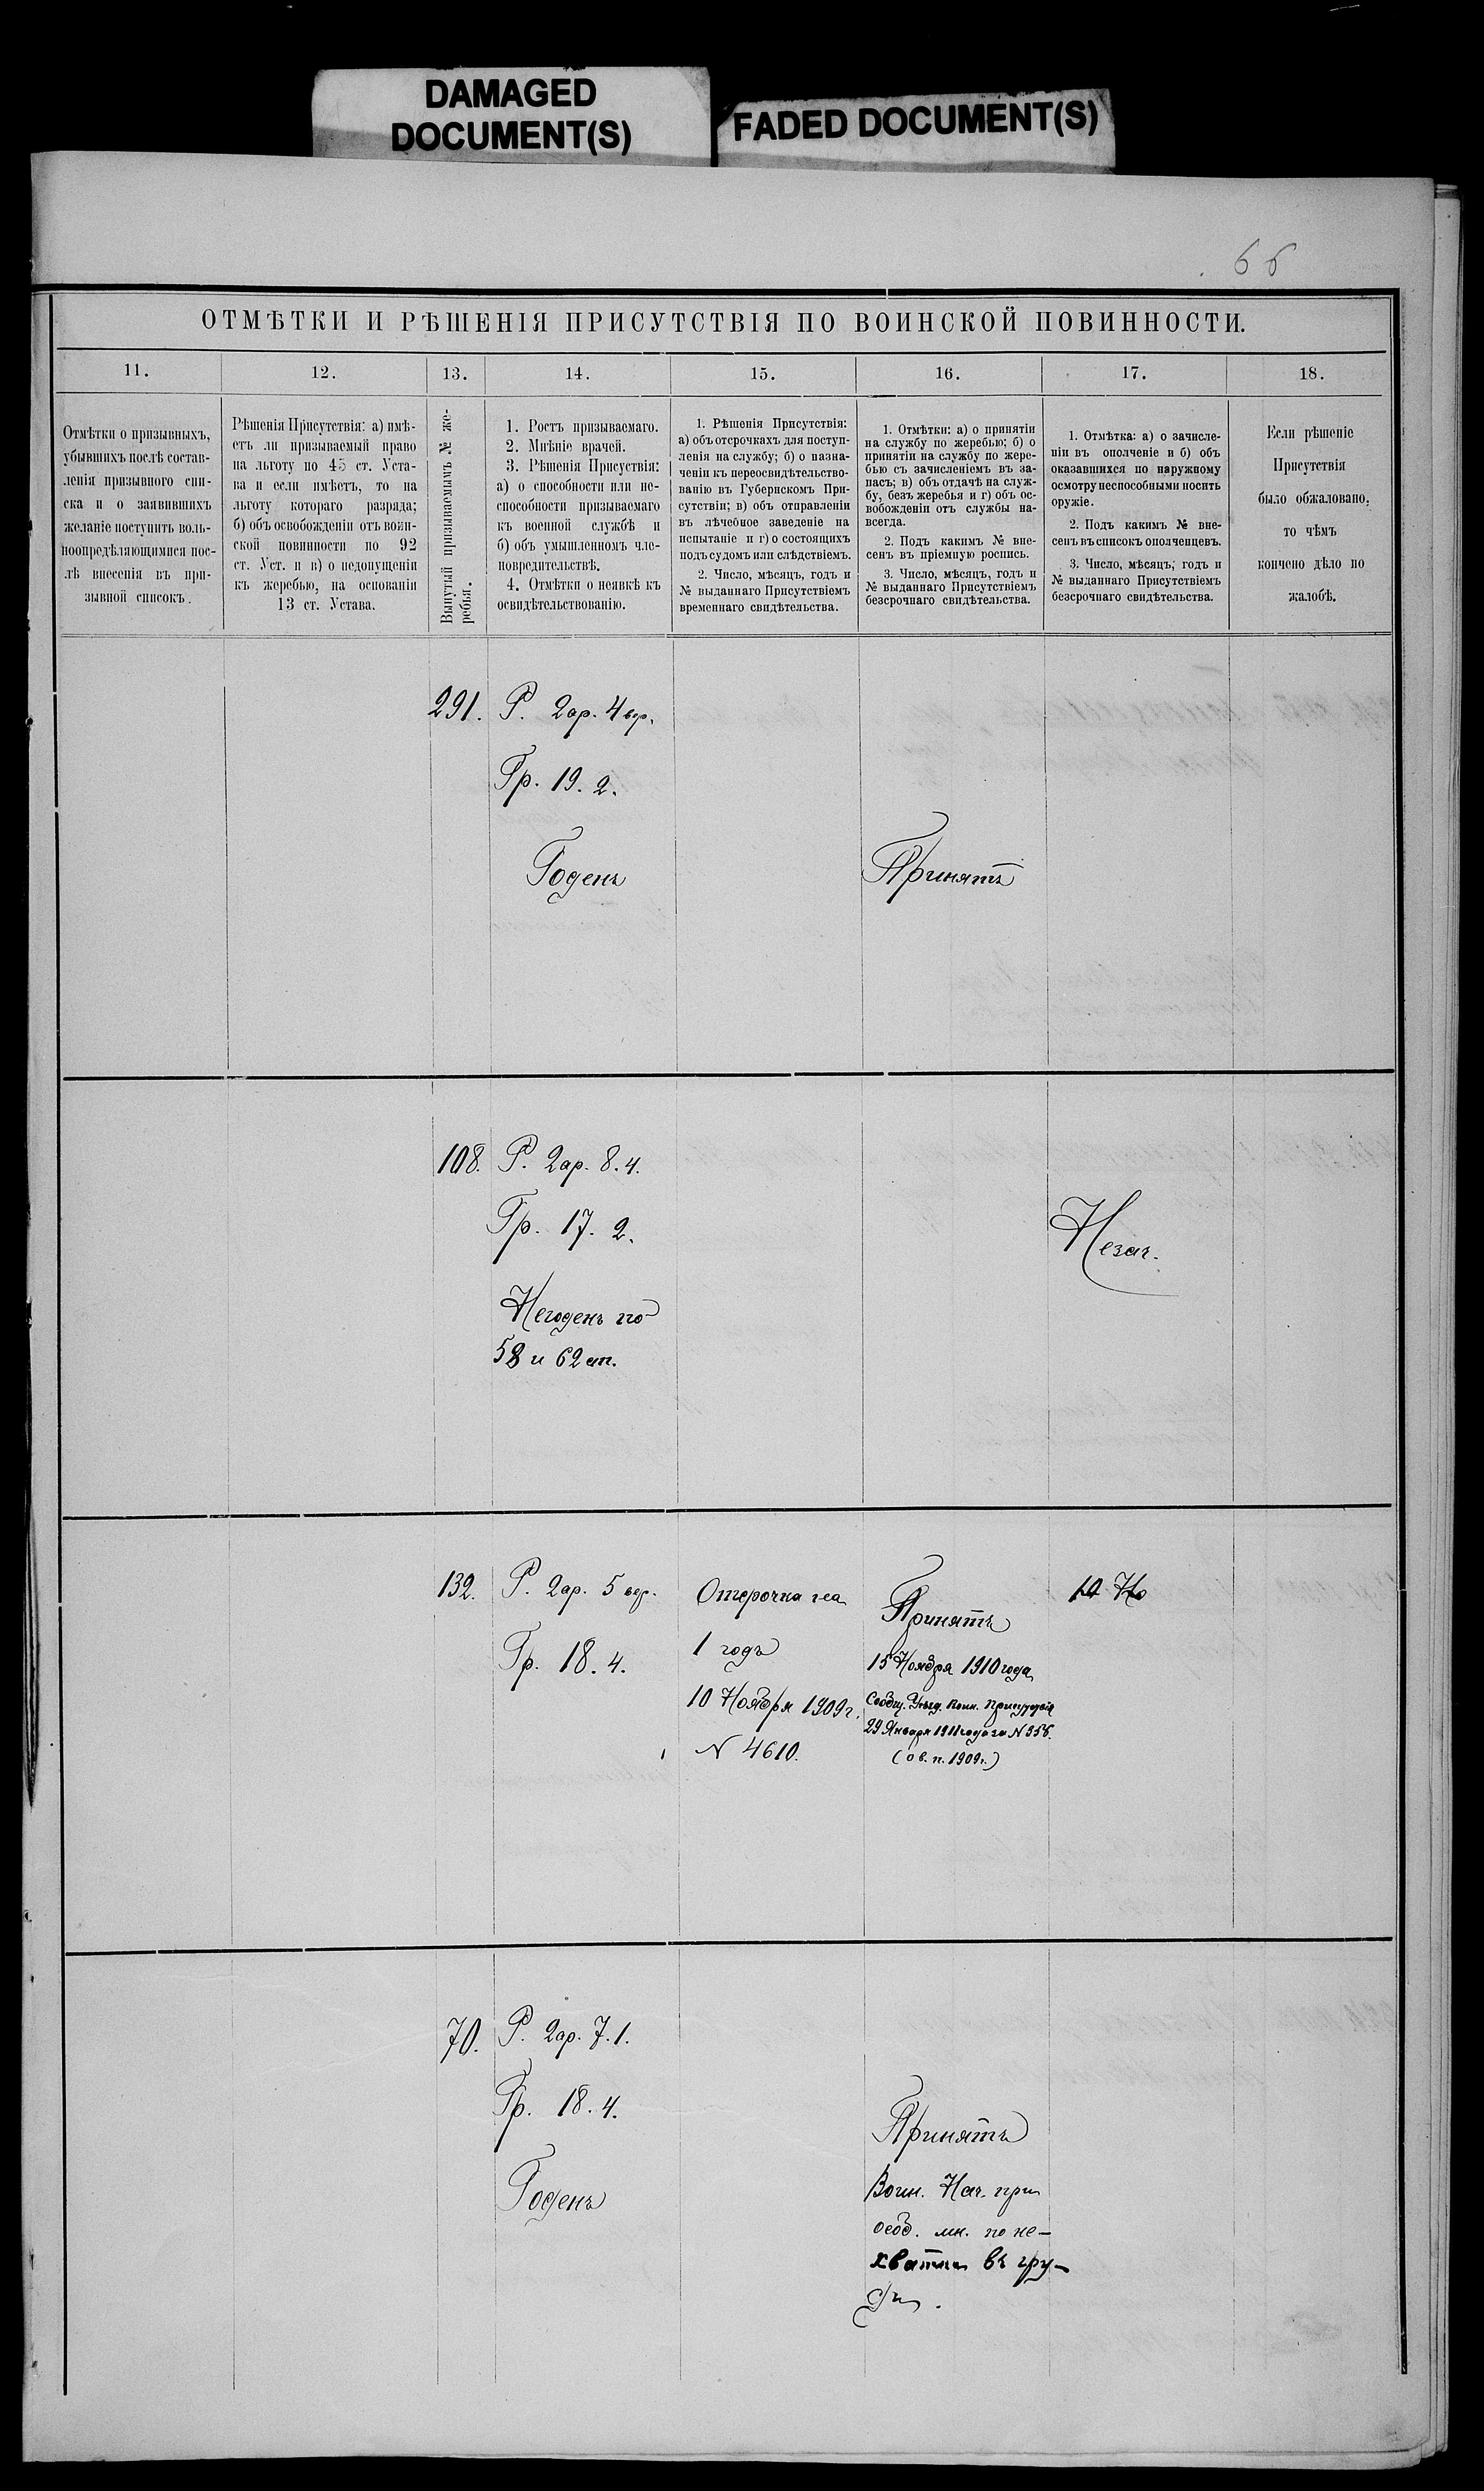 DAMAGED
DOCUMENT(S)
FADED DOCUMENT(S)
66
ОТМѢТКИ И РѢШЕНІЯ ПРИСУТСТВІЯ ПО ВОИНСКОЙ ПОВИННОСТИ.
11.
12.
13.
14.
15.
16.
17.
18.
Отмѣтки о призывныхъ,
убывшихъ послѣ состав-
ленія призывного спи-
ска и о заявившихъ
желаніе поступить воль-
ноопредѣляющимися пос-
лѣ внесенія въ при-
зывной списокъ.
Рѣшенія Присутствія: а) имѣ-
етъ ли призываемый право
на льготу по 45 ст. Уста-
ва и если имѣетъ, то на
льготу котораго разряда;
б) объ освобожденіи отъ воин-
ской повинности по 92
ст. Уст. и в) о недопущеніи
къ жеребью, на основаніи
13 ст. Устава.
Вынутый призываемымъ № же-
ребья.
1. Ростъ призываемаго.
2. Мнѣніе врачей.
3. Рѣшенія Присуствія:
а) о способности или не-
способности призываемаго
къ военной службѣ и
б) объ умышленномъ чле-
новредительствѣ.
4. Отмѣтки о неявкѣ къ
освидѣтельствованію.
1. Рѣшенія Присутствія:
а) объ отсрочкахъ для поступ-
ленія на службу; б) о назна-
ченіи къ переосвидѣтельство-
ванію въ Губернскомъ При-
сутствіи; в) объ отправленіи
въ лѣчебное заведеніе на
испытаніе и г) о состоящихъ
подъ судомъ или слѣдствіемъ.
2. Число, мѣсяцъ, годъ и
№ выданнаго Присутствіемъ
временнаго свидѣтельства.
1. Отмѣтки: а) о принятіи
на службу по жеребью; б) о
принятіи на службу по жере-
бью съ зачисленіемъ въ за-
пасъ; в) объ отдачѣ на служ-
бу, безъ жеребья и г) объ ос-
вобожденіи отъ службы на-
всегда.
2. Подъ какимъ № вне-
сенъ въ пріемную роспись.
3. Число, мѣсяцъ, годъ и
№ выданнаго Присутствіемъ
безсрочнаго свидѣтельства.
1. Отмѣтка: а) о зачисле-
ніи въ ополченіе и б) объ
оказавшихся по наружному
осмотру неспособными носить
оружіе.
2. Подъ какимъ № вне-
сенъ въ списокъ ополченцевъ.
3. Число, мѣсяцъ, годъ и
№ выданнаго Присутствіемъ
безсрочнаго свидѣтельства.
Если рѣшеніе
Присутствія
было обжаловано,
то чѣмъ
кончено дѣло по
жалобѣ.
291.
Р. 2 ар. 4 вер.
Гр. 19. 2.
Годенъ
Принятъ
108.
Р. 2 ар. 8. 4.
Гр. 17. 2.
Негоденъ по
58 и 62 ст.
Незач.
132.
Р. 2 ар. 5 вер.
Гр. 18. 4.
Отсрочка на
1 годъ
10 Ноября 1909 г.
N 4610.
Принятъ
15 Ноября 1910 года
Сообщ. Уѣзд. Воин. Присутствія
29 Января 1911 года за N 356.
(о в. п. 1909 г.)
10 Но
70.
Р. 2 ар. 7. 1.
Гр. 18. 4.
Годенъ
Принятъ
Воин. Нач. при
особ. мн. по не-
хватки въ гру-
ди.